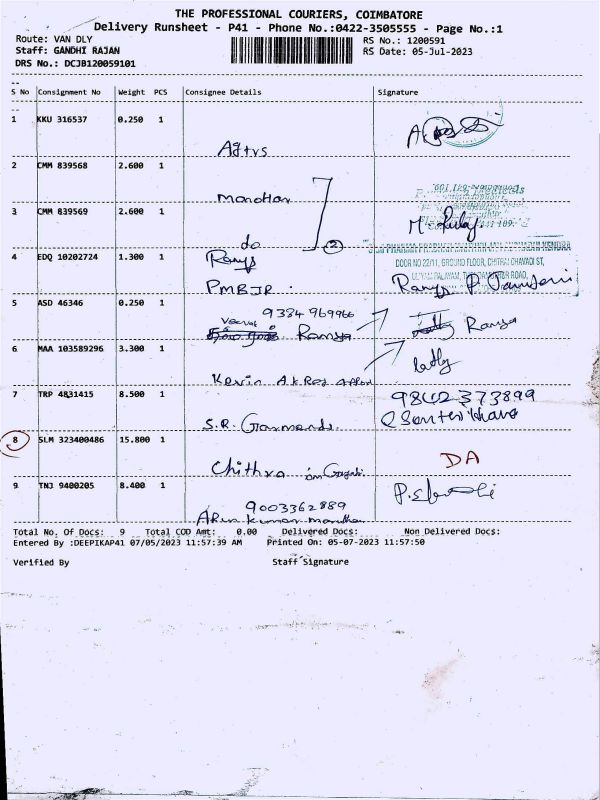 THE PROFESSIONAL COURIERS, COIMBATORE
Delivery Runsheet - P41 - Phone No.:0422-3505555 - Page No.:1
Route: VAN DLY
RS No.: 1200591
Staff: GANDHI RAJAN
RS Date: 05-Jul-2023
DRS No.: DCJB120059101
S No Consignment No Weight PCS Consignee Details Signature
1 KKU 316537 0.250 1
2 CMM 839568 2.600 1
Manohar
3 CMM 839569 2.600 1
do 2
4 EDQ 10202724 1.300 1
Ramys
DOOR NO 22/11, GROUND FLOOR, CHITRAI CHAVADI ST,
PMBJP
5 ASD 46346 0.250 1
9334 969966
Ramya Ramya
6 MAA 103589296 3.300 1
Kevin A.K Raj
7 TRP 4831415 8.500 1
9842373899
S.R. Garments
8 SLM 323400486 15.800 1
Chithra DA
9 TNJ 9400205 8.400 1
9003362889
Arun Kumar
Total No. Of Docs: 9 Total COD Amt: 0.00 Delivered Docs: Non Delivered Docs:
Entered By :DEEPIKAP41 07/05/2023 11:57:39 AM Printed On: 05-07-2023 11:57:50
Verified By Staff Signature